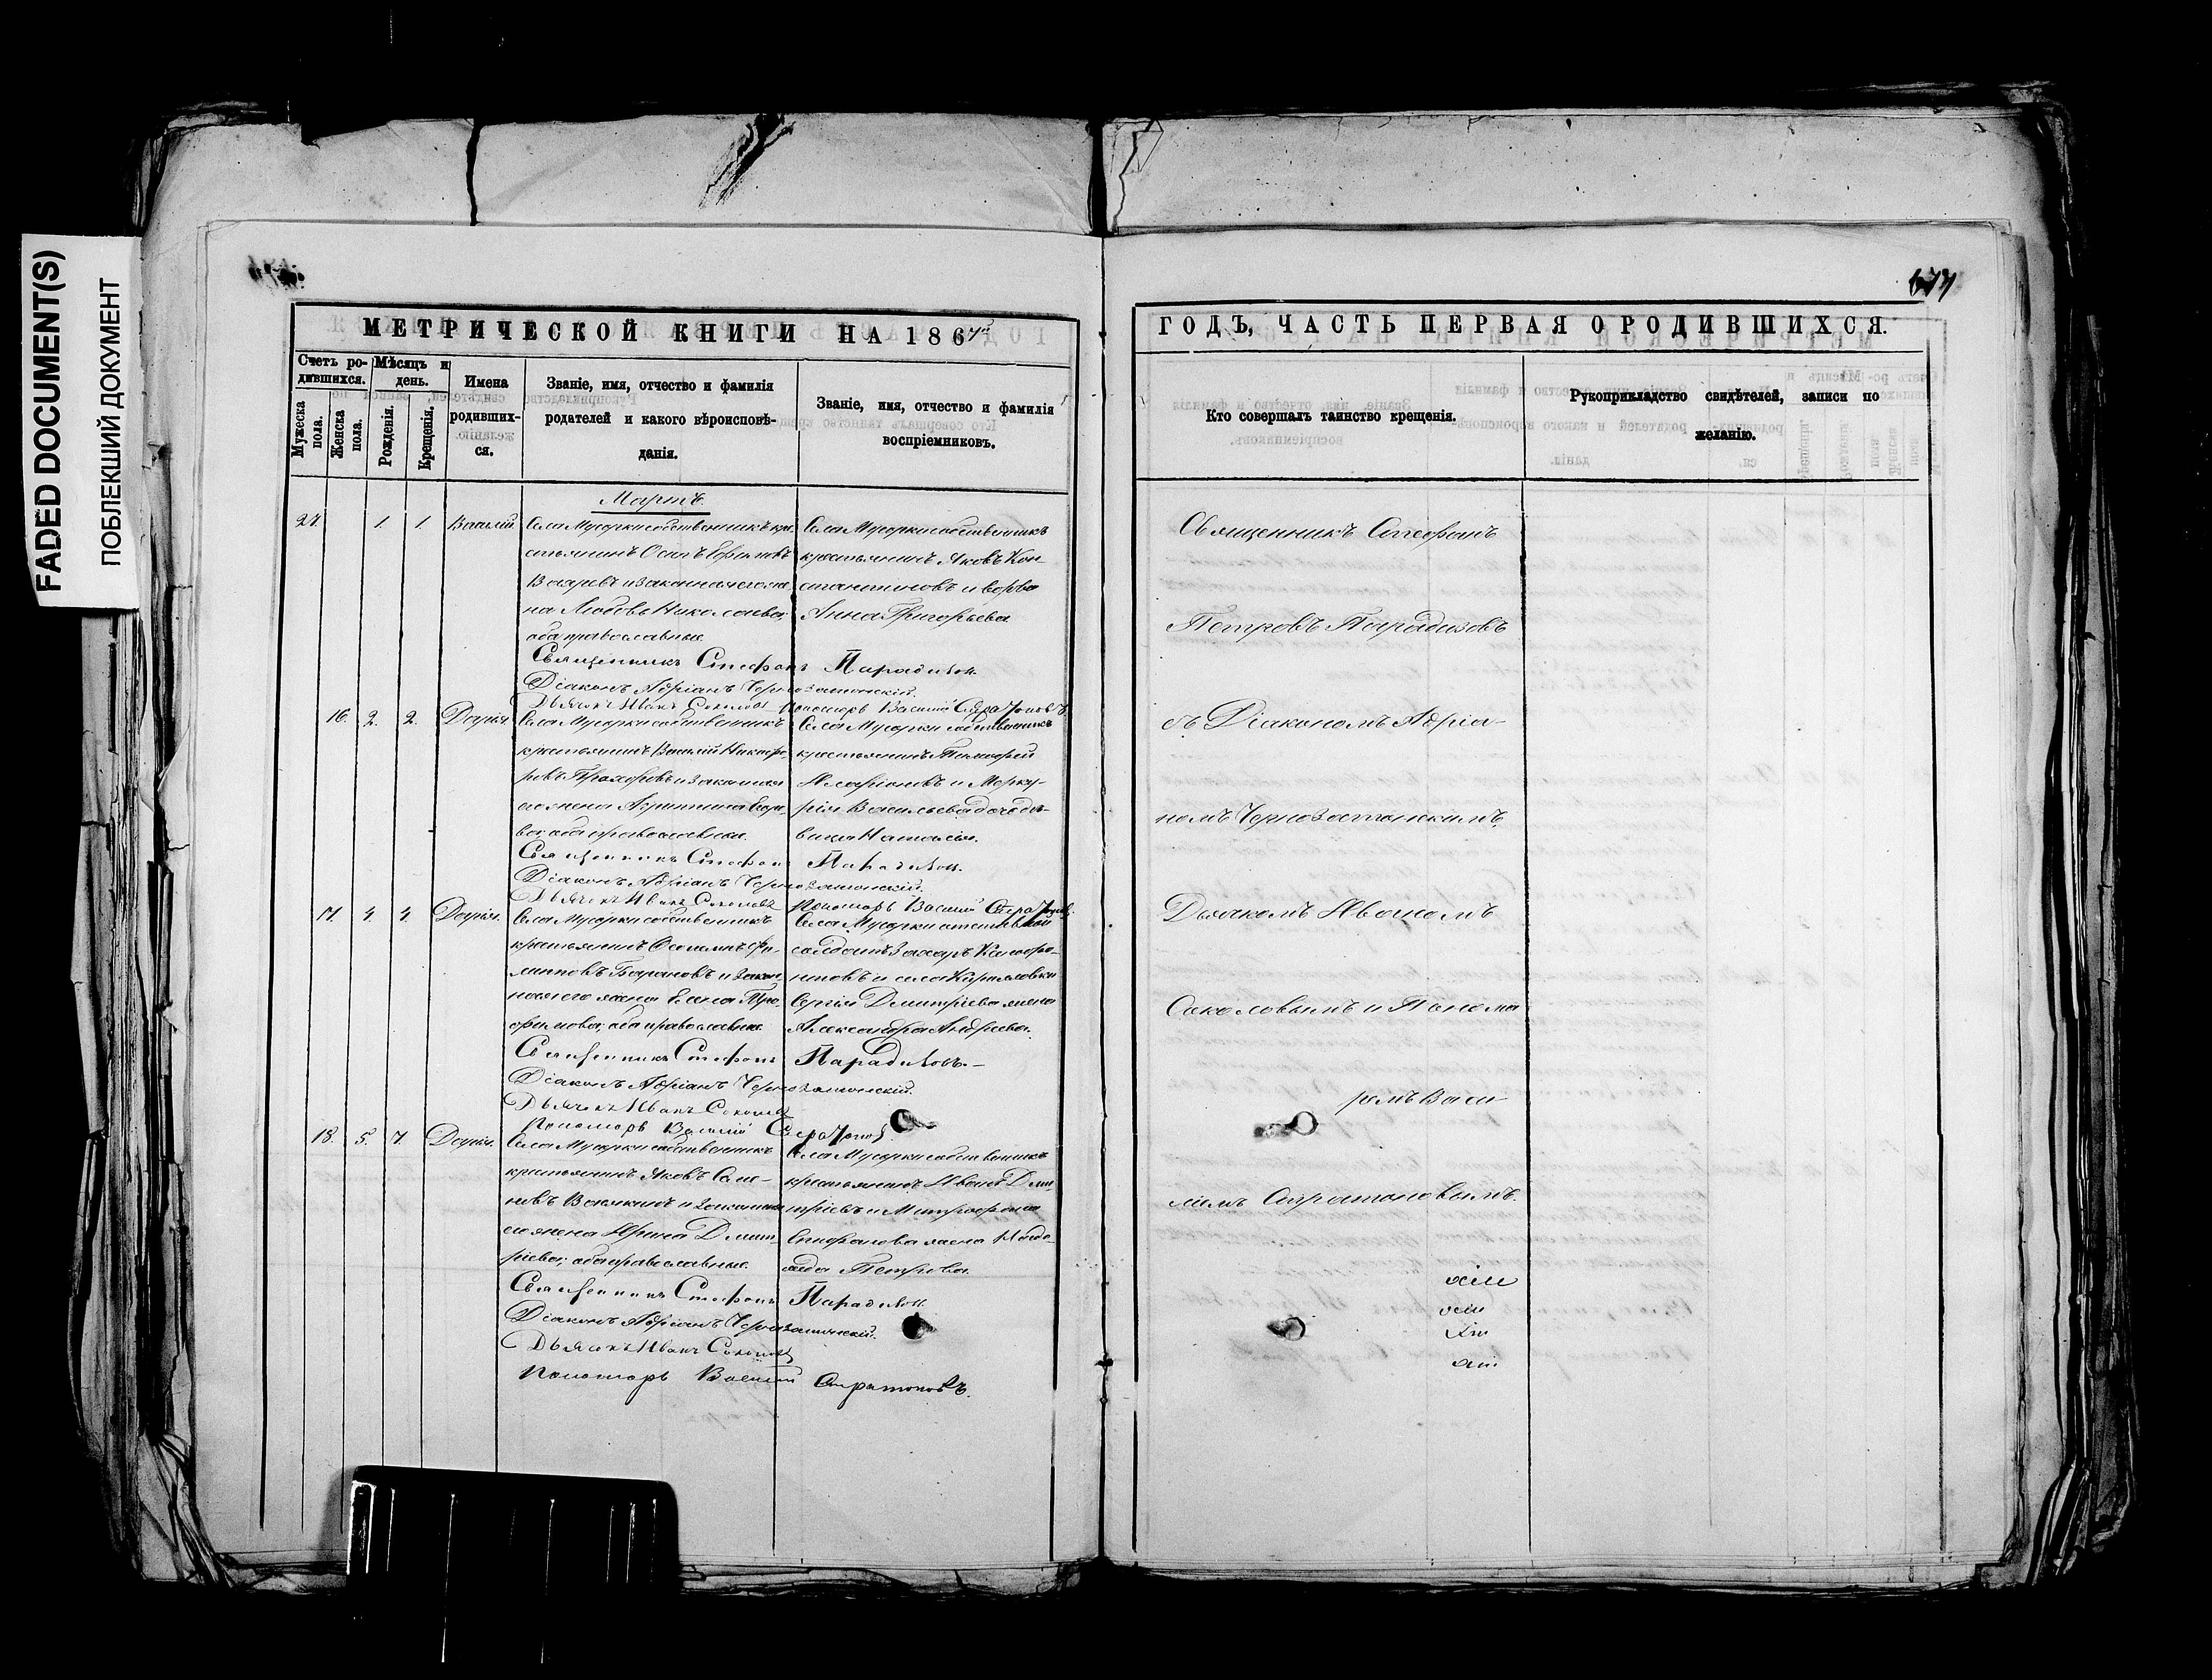 FADED DOCUMENT(S)
ПОБЛЕКШИЙ ДОКУМЕНТ
МЕТРИЧЕСКОЙ КНИГИ НА 1867
Счетъ ро-
дившихся.
Мѣсяцъ и
день.
Мужеска
пола.
Женска
пола.
Рожденія.
Крещенія.
Имена
родивших-
ся.
Званіе, имя, отчество и фамилія
родителей и какого вѣроисповѣ-
данія.
Званіе, имя, отчество и фамилія
воспріемниковъ.
Мартъ.
1 1 Василій
Села Мусорки собственникъ кре-
стьянинъ Осипъ
и законная его же-
на Любовь Николаева,
оба православные.
Села Мусорки собственникъ
крестьянинъ Яковъ Кон-
стантиновъ и
Анна Григорьева
Священникъ Стефанъ Парадизов.
Діаконъ Адріанъ Чернозатонскій.
Дьячекъ Иванъ Соколовъ Пономарь Василій Стратоновъ.
16. 2. 2. Дарія
Села Мусорки собственникъ
крестьянинъ Василій Никифо-
ровъ Прохоровъ и законная
его жена Агриппина Его-
ва, оба православные.
Села Мусорки собственникъ
крестьянинъ Тимофей
Иларіоновъ и Мерку-
рія Васильева дочь дѣ-
вица Наталія.
Священникъ Стефанъ Парадизов.
Діаконъ Адріанъ Чернозатонскій.
Дьячекъ Иванъ Соколовъ Пономарь Василій Стратоновъ.
17. 4. 4. Дарія.
Села Мусорки собственникъ
крестьянинъ Фи-
липповъ Барановъ и закон-
ная его жена Елена Тро-
фимова, оба православные.
Села Мусорки отставной
солдатъ Захаръ
и села Кирилловки
Сергія Дмитріева жена
Александра Андреева.
Священникъ Стефанъ Парадизовъ.
Діаконъ Адріанъ Чернозатонскій.
Дьячекъ Иванъ Соколовъ
Пономарь Василій Стратоновъ.
18. 5. 7. Дарія.
Села Мусорки собственникъ
крестьянинъ Яковъ Семе-
новъ и законная
его жена Ирина Дмит-
ріева, оба православные.
Села Мусорки собственникъ
крестьянинъ Иванъ Дми-
тріевъ и Митрофана
Епифанова жена
Петрова.
Священникъ Стефанъ Парадизов.
Діаконъ Адріанъ Чернозатонскій.
Дьячекъ Иванъ Соколовъ
Пономарь Василій Стратоновъ.
ГОДЪ, ЧАСТЬ ПЕРВАЯ О РОДИВШИХСЯ.
Кто совершалъ таинство крещенія.
Рукоприкладство свидѣтелей, записи по
желанію.
Священникъ Стефанъ
Петровъ Парадизовъ
съ Діакономъ Адріа-
номъ Чернозатонскимъ,
Дьячкомъ Иваномъ
Соколовымъ и Понома
ремъ Васи
ліемъ Стратоновымъ.